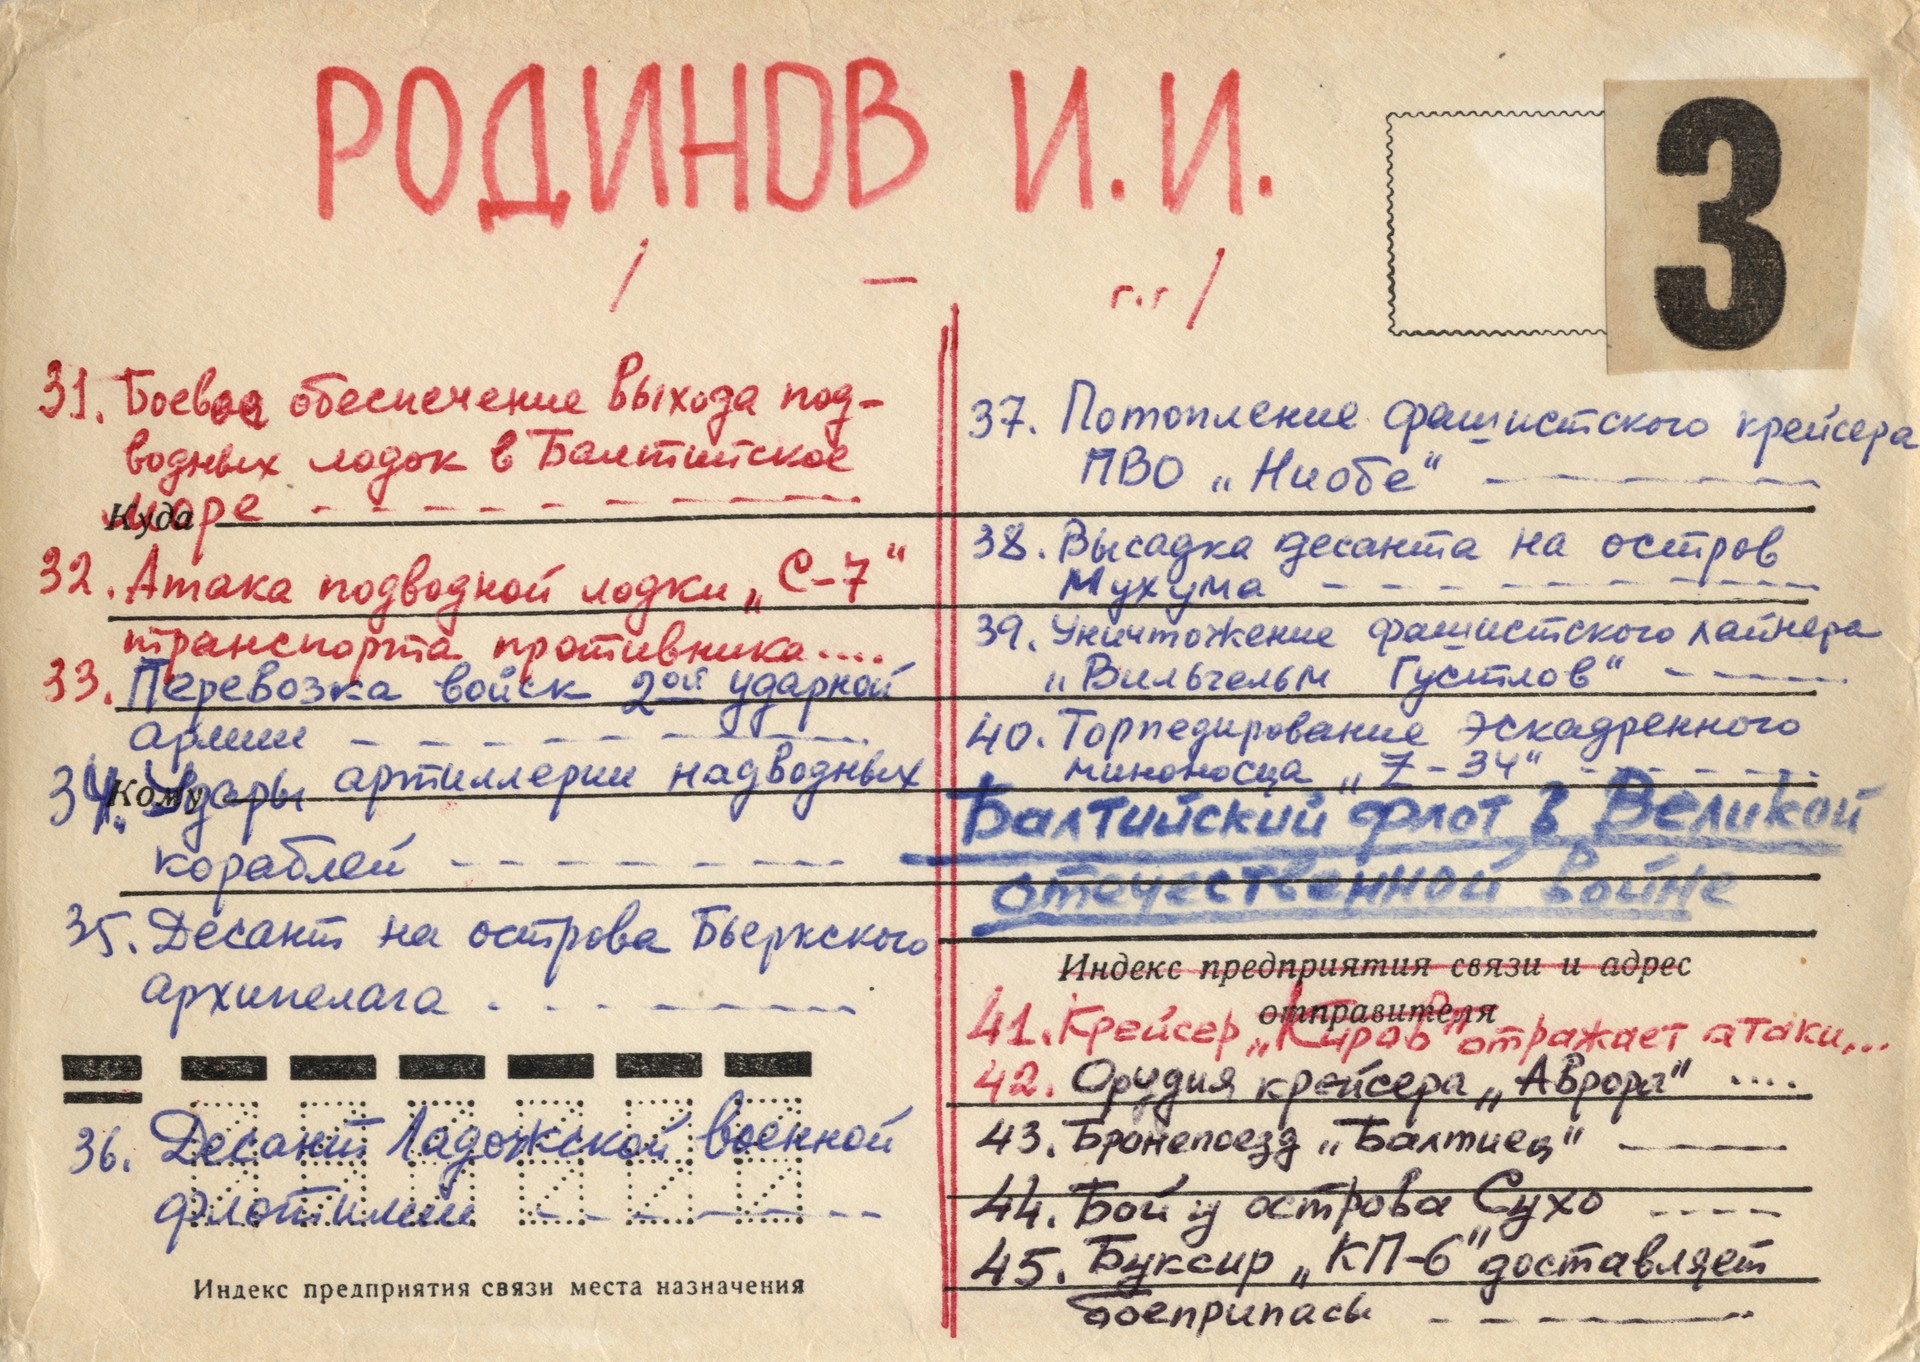 РОДИНОВ И. И.
3
/ — г.г /
31. Боевое обеспечение выхода под-
водных лодок в Балтийское
море
Куда
32. Атака подводной лодки „С-7“
транспорта противника....
33. Перевозка войск 2ой ударной
армии
34. Удары артиллерии надводных
Кому
кораблей
35. Десант на острова Бьеркского
архипелага
36. Десант Ладожской военной
флотилии
Индекс предприятия связи места назначения
37. Потопление фашистского крейсера
ПВО „Ниобе“
38. Высадка десанта на остров
Мухума
39. Уничтожение фашистского лайнера
„Вильгельм Густлов“
40. Торпедирование эскадренного
миноносца „Z-34“
Балтийский флот в Великой
отечественной войне
Индекс предприятия связи и адрес
отправителя
41. Крейсер „Киров“ отражает атаки...
42. Орудия крейсера „Аврора“ ....
43. Бронепоезд „Балтиец“
44. Бой у острова Сухо
45. Буксир „КП-6“ доставляет
боеприпасы